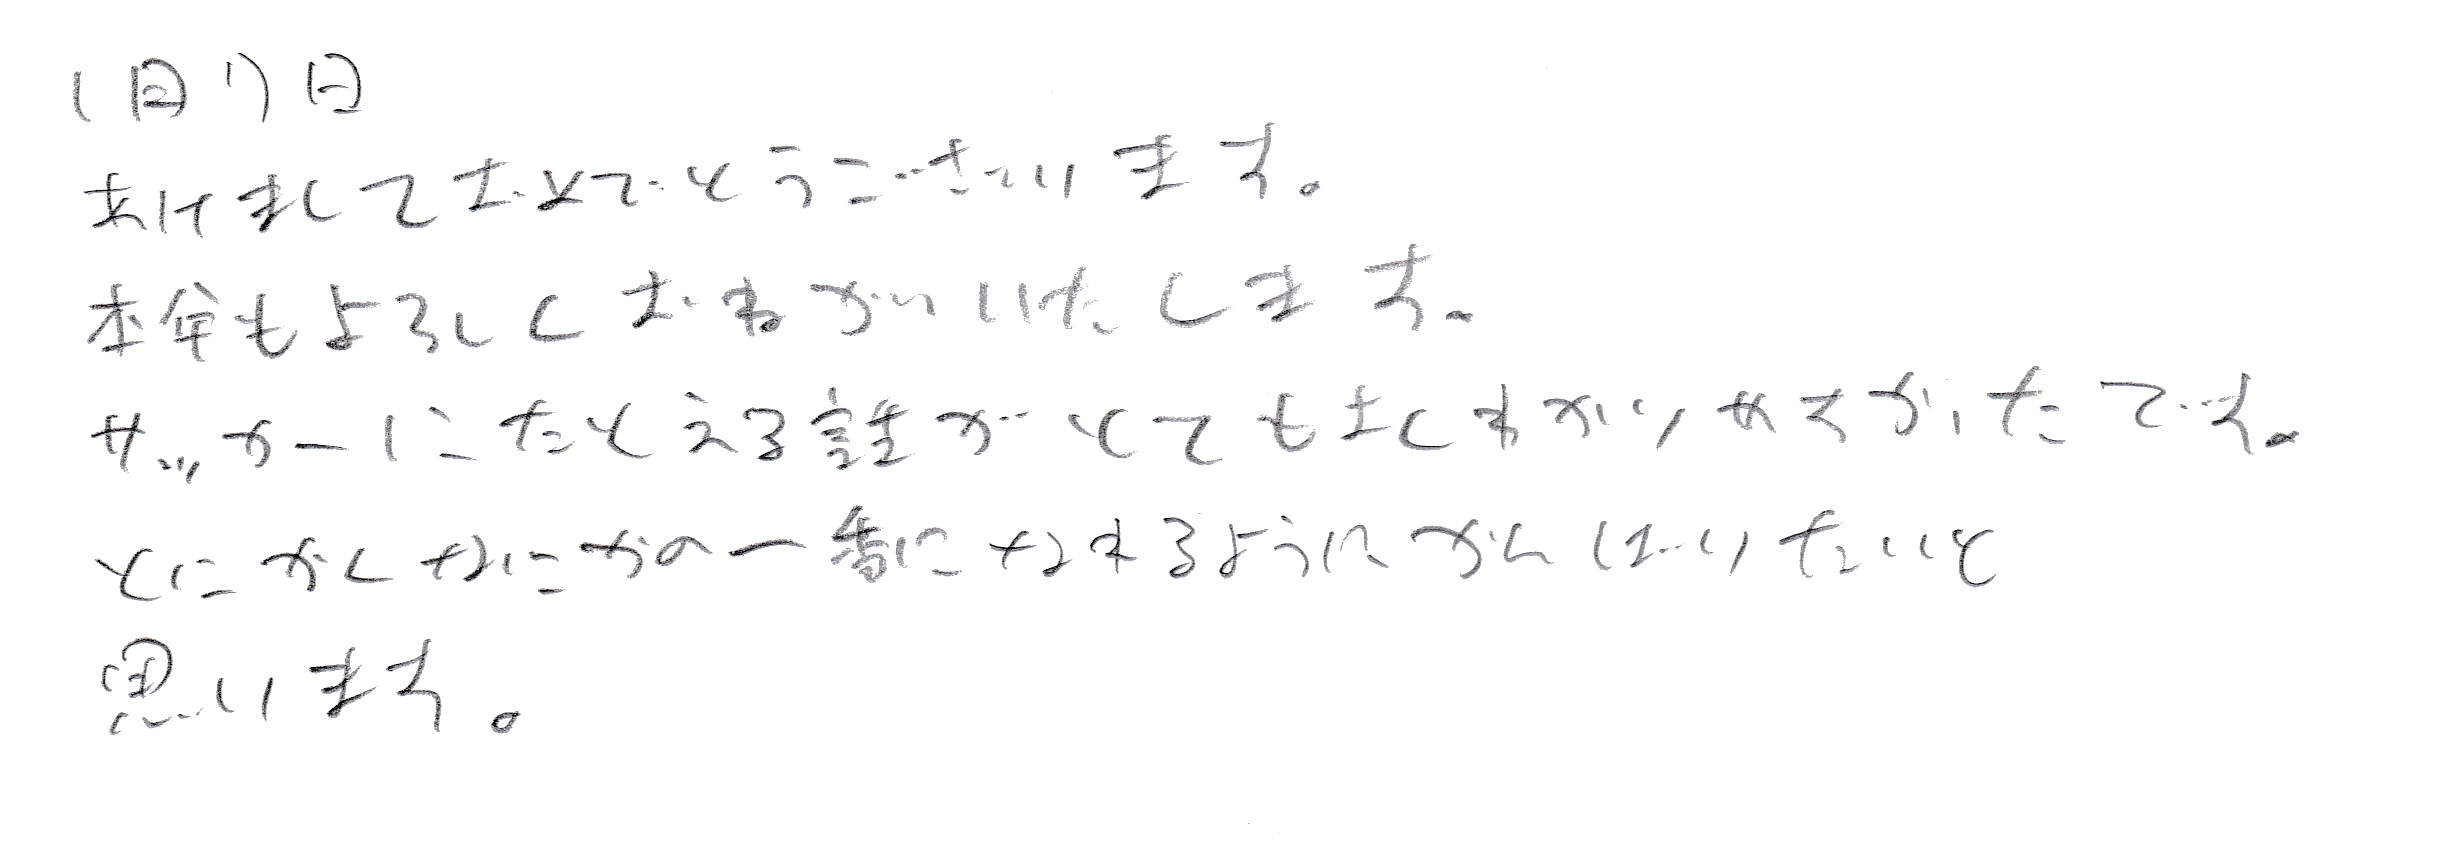 1月7日
あけましておめでとうございます。
本年もよろしくおねがいいたします。
サッカーにたとえる話がとてもよくわかりやすかったです。
とにかくなにかの一番になれるようにがんばりたいと
思います。